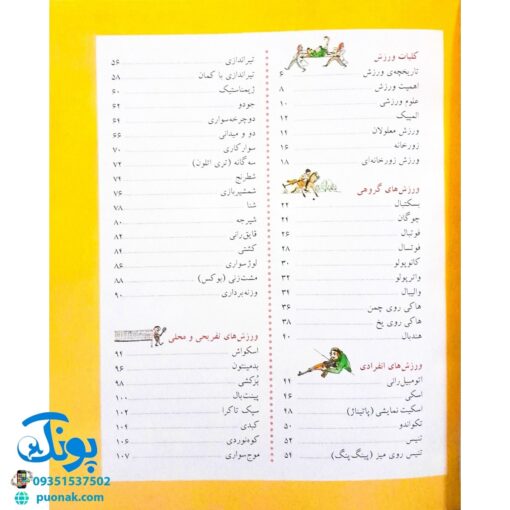 کلیات ورزش
تاریخچه‌ی ورزش ۶
اهمیت ورزش ۸
علوم ورزشی ۱۰
المپیک ۱۲
ورزش معلولان ۱۴
زورخانه ۱۶
ورزش زورخانه‌ای ۱۸
ورزش‌های گروهی
بسکتبال ۲۲
چوگان ۲۴
فوتبال ۲۶
فوتسال ۲۸
کانوپولو ۳۰
واترپولو ۳۲
والیبال ۳۴
هاکی روی چمن ۳۶
هاکی روی یخ ۳۸
هندبال ۴۰
ورزش‌های انفرادی
اتومبیل‌رانی ۴۴
اسکی ۴۶
اسکیت نمایشی (پاتیناژ) ۴۸
تکواندو ۵۰
تنیس ۵۲
تنیس روی میز (پینگ‌پنگ) ۵۴
تیراندازی ۵۶
تیراندازی با کمان ۵۸
ژیمناستیک ۶۰
جودو ۶۲
دوچرخه‌سواری ۶۴
دو و میدانی ۶۶
سوارکاری ۷۰
سه‌گانه (تری اتلون) ۷۲
شطرنج ۷۴
شمشیربازی ۷۶
شنا ۷۸
شیرجه ۸۰
قایق‌رانی ۸۲
کشتی ۸۴
لوژسواری ۸۶
مشت‌زنی (بوکس) ۸۸
وزنه‌برداری ۹۰
ورزش‌های تفریحی و محلی
اسکواش ۹۴
بدمینتون ۹۶
بُزکشی ۹۸
پینت‌بال ۱۰۰
سپک تاکرا ۱۰۲
کبدی ۱۰۴
کوه‌نوردی ۱۰۶
موج‌سواری ۱۰۷
پونک
09351537502
puonak.com